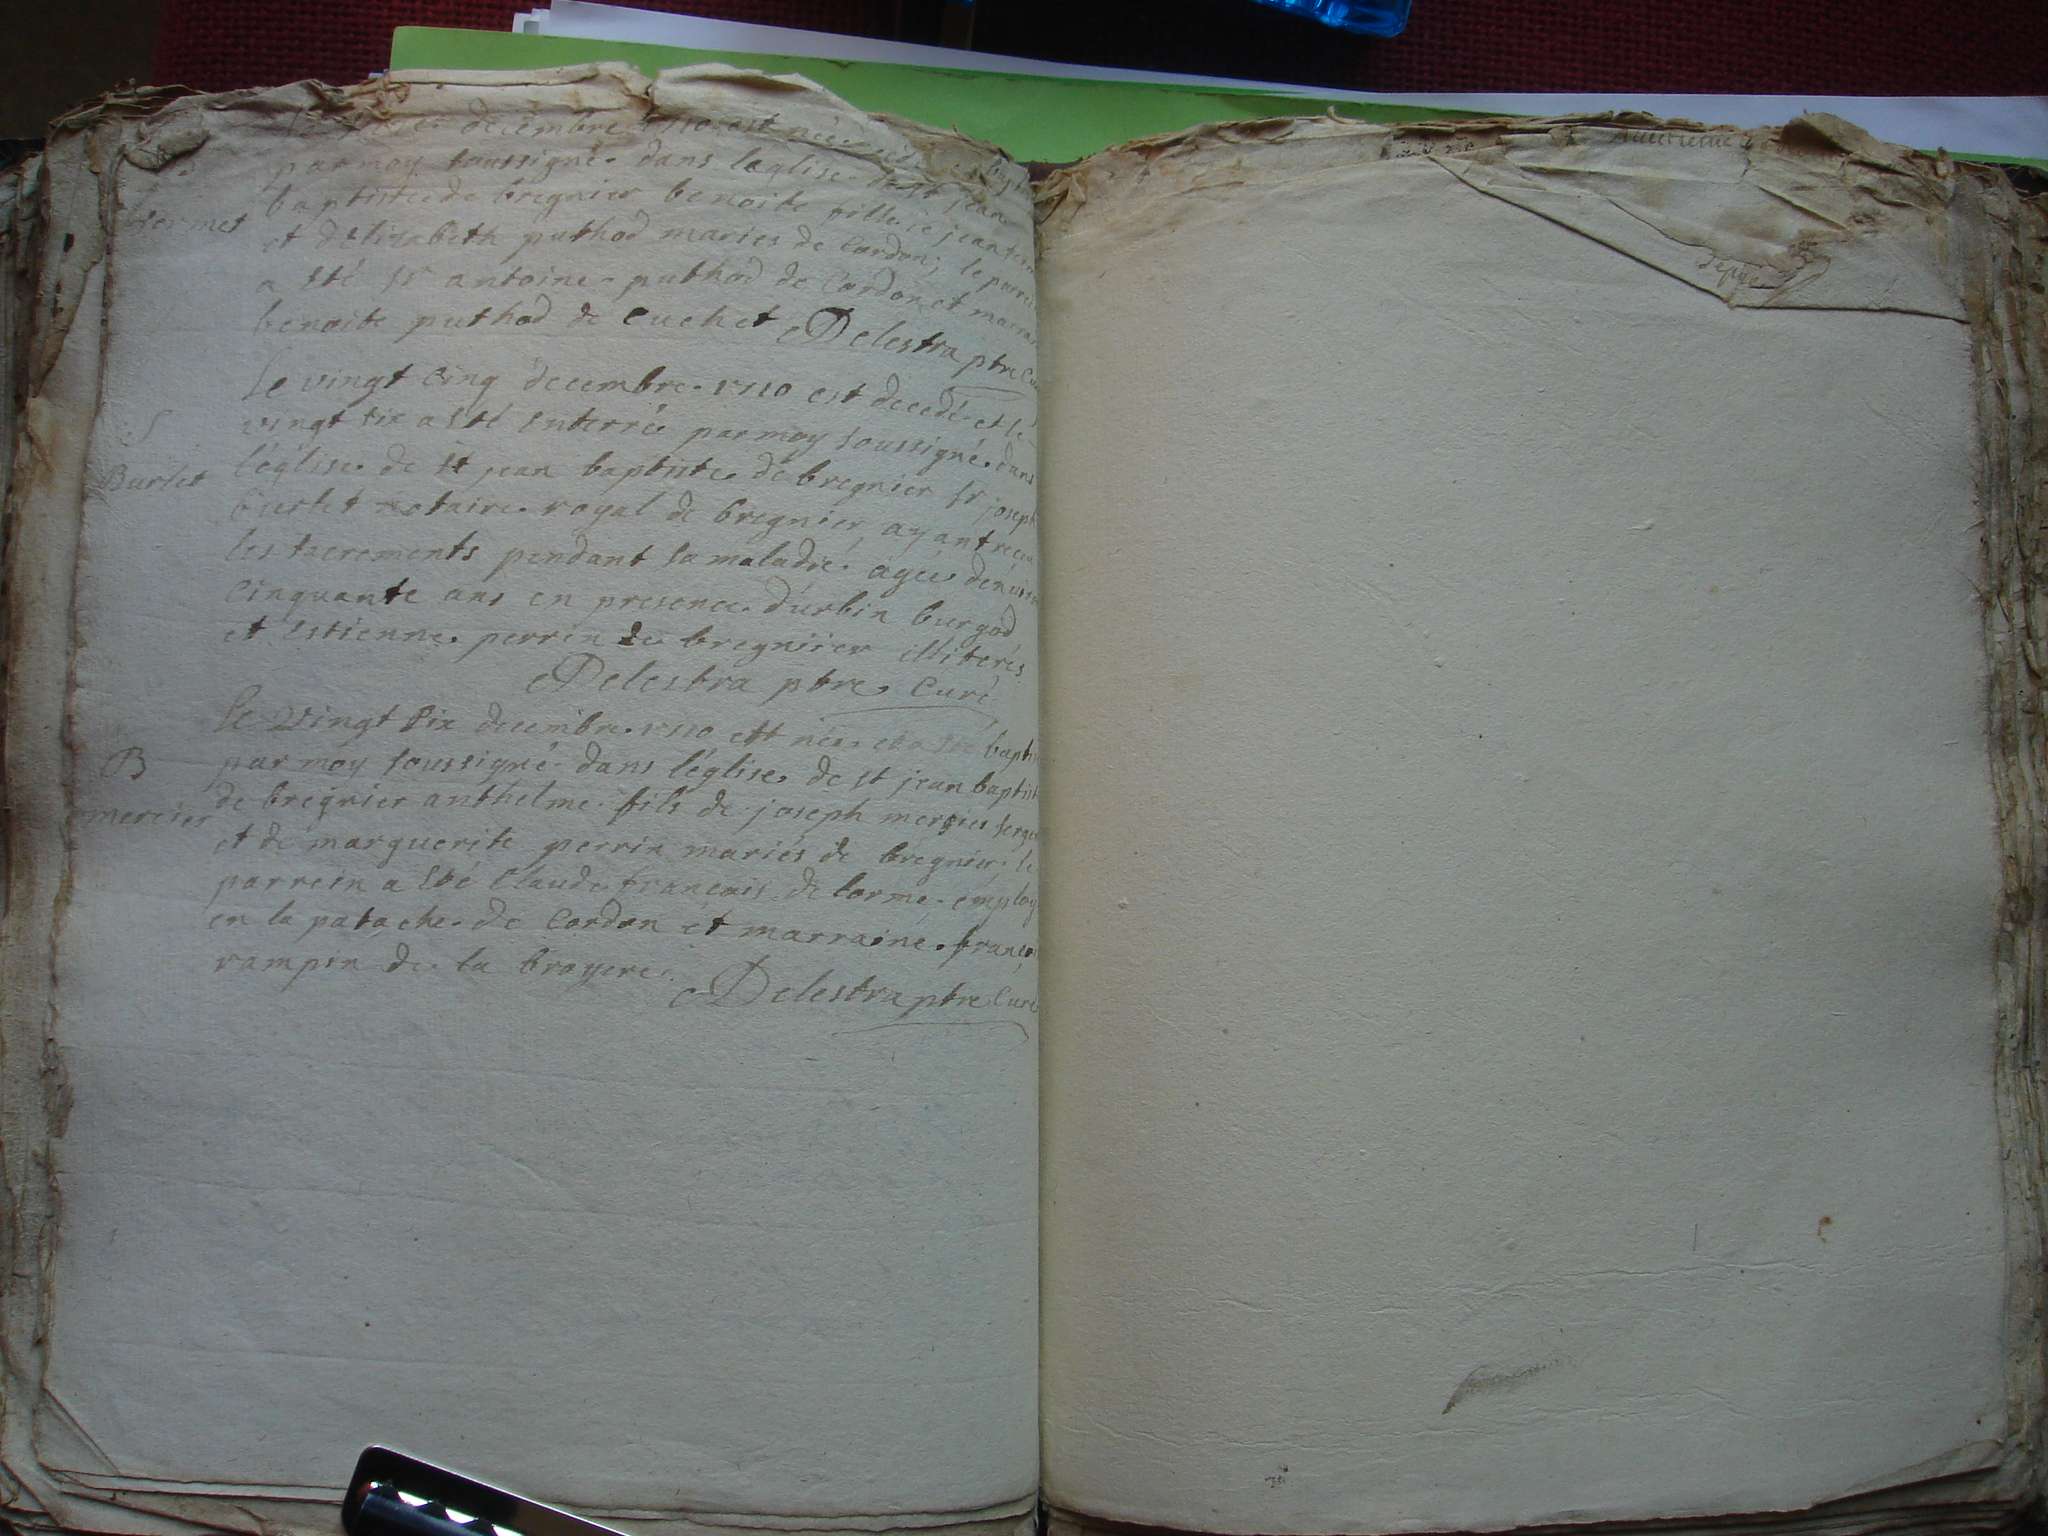 decembre 1710 est née
par moy soussigné dans leglise de st jean
baptiste de bregnier benoite fille de jean
vermet
et delizabeth puthod maries de Cordon; le parrein
a sté sr antoine puthod de Cordon et marraine
benoite puthod de Cuchet Delestra ptre Curé
Le vingt cinq decembre 1710 est decedé et le
vingt six a sté enterré par moy soussigné dans
S
léglise de st jean baptiste de bregnier sr joseph
Burlet
burlet notaire royal de bregnier ayant receu
les sacrements pendant sa maladie agée denviron
cinquante ans en presence d'urbin burgod
et estienne perrin de bregnier illiterés
Delestra ptre Curé
Le vingt six decembre 1710 est née et a sté baptisé
par moy soussigné dans léglise de st jean baptiste
B
de bregnier anthelme fils de joseph mercier
mercier
et de marguerite perrin mariés de bregnier; le
parrein a sté Claude françois de lorme employ
en la patache de Cordon et marraine françois
rampin de la broyere
Delestra ptre Curé